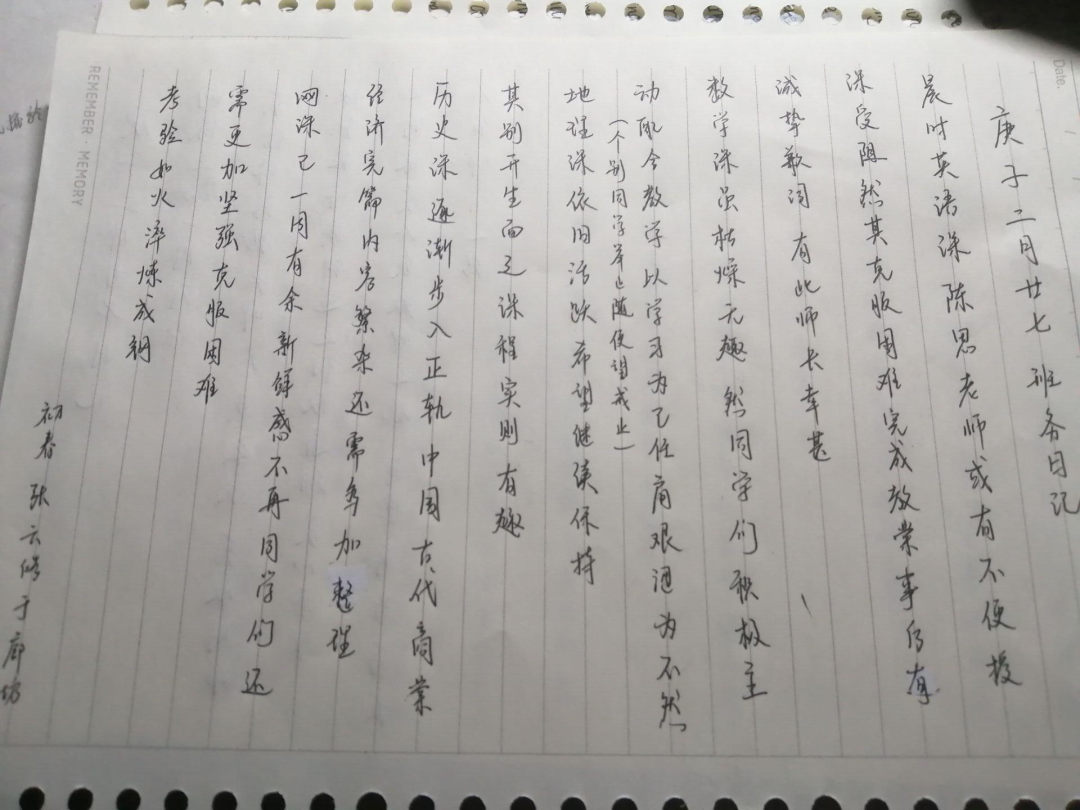 庚子二月廿七 班务日记
晨时英语课陈思老师或有不便授
课受阻然其克服困难完成教业事后有
诚挚歉词 有此师长幸甚
数学课虽枯燥无趣然同学们积极主
动配合教学以学习为己任商艰迅为不然
(个别同学举止随便望戒止)
地理课依旧活跃希望继续保持
其别开生面之课程实则有趣
历史课逐渐步入正轨中国古代商业
经济完篇内容繁杂还需多加整理
网课已一周有余新鲜感不再同学们还
需更加坚强克服困难
考验如火淬炼成钢
初春 张云修于廊坊
REMEMBER · MEMORY
Date.